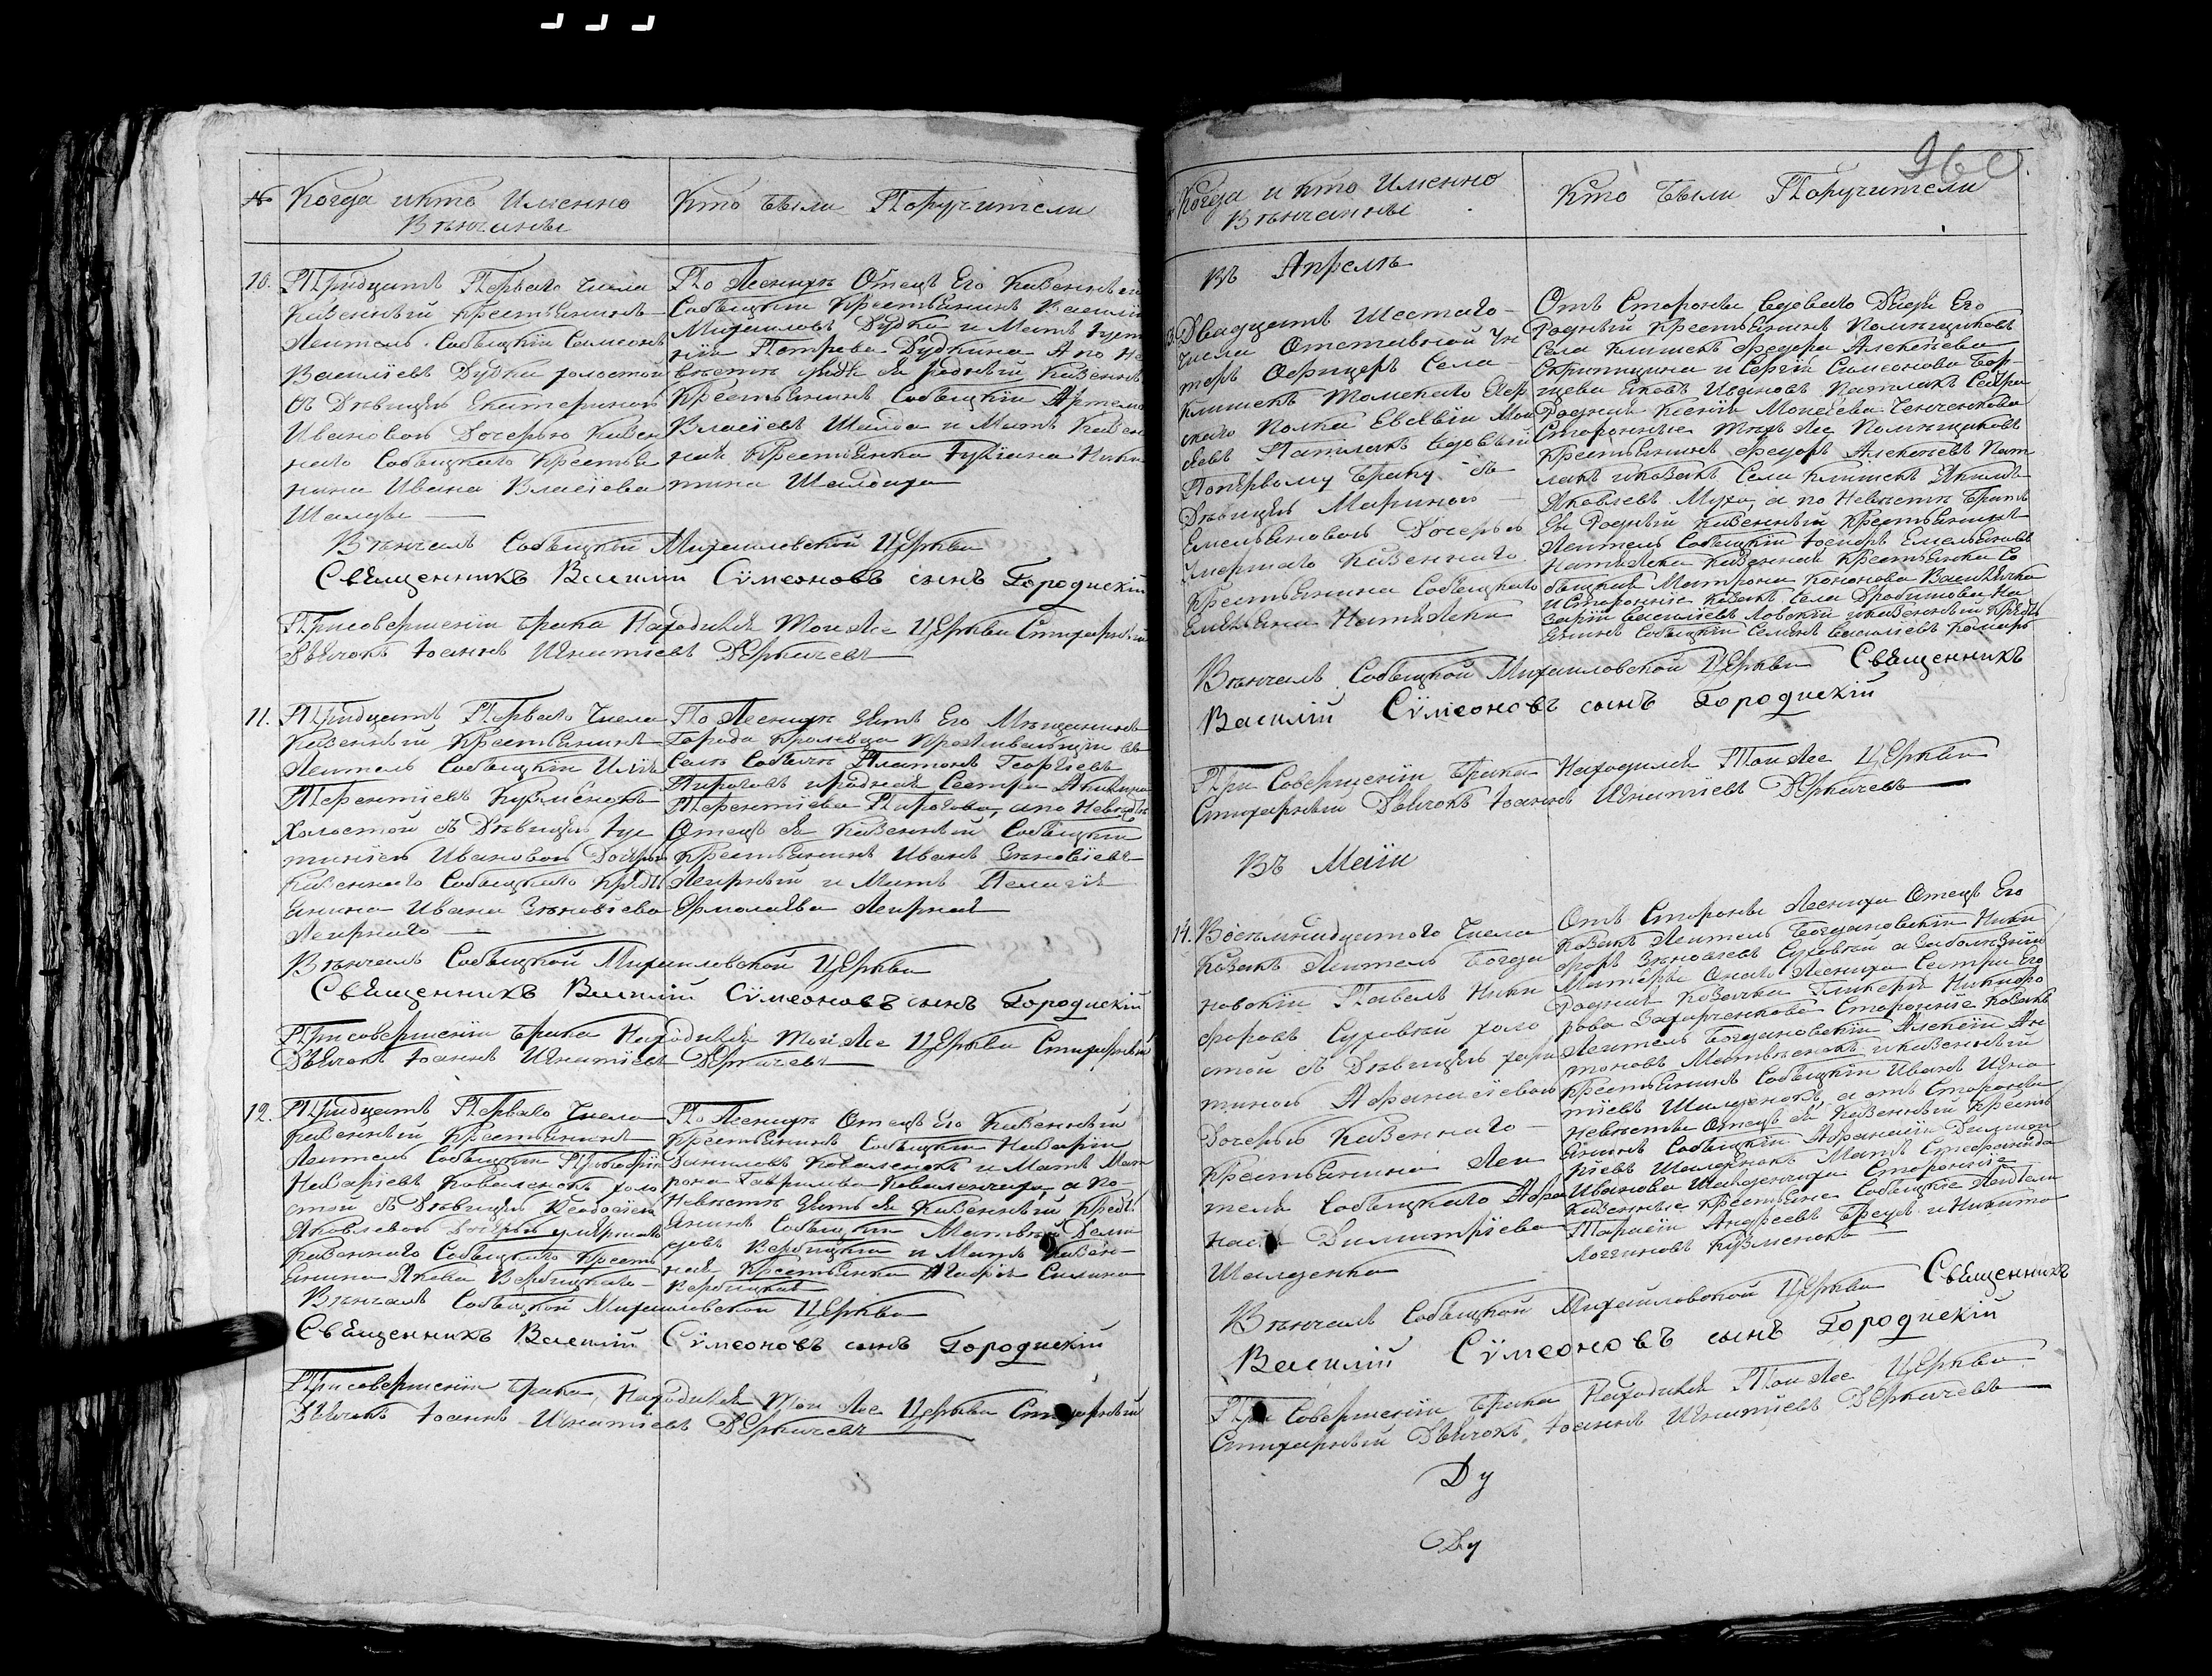 № Когда и кто Именно
Вѣнчаны
Кто были Поручители
10. Тридцать Перваго Числа
Казенный Крестьянинъ
Житель Собыцкій Симеонъ
Василіевъ Дудка холостой
съ Дѣвицею Екатериною
Ивановою Дочерью Казен
наго Собыцкаго Крестья
нина Ивана Власіева
Шалды
По Женихѣ Отецъ Его Казенный
Собыцкій Крестьянинъ Василій
Михайловъ Дудка и Мать
Петрова Дудкина А по Не
вѣстѣ дядя ея родный Казенный
Крестьянинъ Собыцкій Артемъ
Власіевъ Шалда и Мать Казен
ная Крестьянка Іуліана Ники
тина Шалдиха
Вѣнчалъ Собыцкой Михайловской Церкви
Священникъ Василій Сѵмеоновъ сынъ Городискій
При совершеніи брака Находился Той же Церкви Стихарный
Дьячокъ Іоаннъ Игнатіевъ Деркачевъ
11. Тридцать Перваго Числа
Казенный Крестьянинъ
Житель Собыцкій Илія
Терентіевъ Кузменокъ
Холостой съ Дѣвицею Іус
тиніею Ивановою Дочерью
Казеннаго Собыцкаго Кресть
янина Ивана Зѣновіева
Жирнаго
По Женихѣ Зять Его Мѣщанинъ
Города Кролевца Проживающій въ
Селѣ Собычѣ Платонъ Георгіевъ
Пироговъ и родная Сестра Акилина
Терентіева Пирогова, а по Невѣстѣ
Отецъ ея Казенный Собыцкій
Крестьянинъ Иванъ Зѣновіевъ
Жирный и Мать Пелагія
Ермолаева Жирная
Вѣнчалъ Собыцкой Михайловской Церкви
Священникъ Василій Сѵмеоновъ сынъ Городискій
При совершеніи брака Находился Той же Церкви Стихарный
Дьячокъ Іоаннъ Игнатіевъ Деркачевъ
12. Тридцать Перваго Числа
Казенный Крестьянинъ
Житель Собыцкій Прокофій
Назаріевъ Коваленокъ холо
стой съ Дѣвицею Ѳеодосіею
Яковлевою Дочерью умершаго
Казеннаго Собыцкаго Кресть
янина Якова Вербицкаго
По Женихѣ Отецъ Его Казенный
Крестьянинъ Собыцкій Назарій
Даниловъ Коваленокъ и Мать Мат
рона Гаврилова Коваленчиха, а по
Невѣстѣ Зять ея Казенный Кресть
янинъ Собыцкій Матвѣй Деми
довъ Вербицкій и Мать Казен
ная Крестьянка Марія Силина
Вербицкая
Вѣнчалъ Собыцкой Михайловской Церкви
Священникъ Василій Сѵмеоновъ сынъ Городискій
При совершеніи брака, Находился Той же Церкви Стихарный
Дьячокъ Іоаннъ Игнатіевъ Деркачевъ
960
Когда и кто Именно
Вѣнчанны
Кто были Поручители
Въ Апрелѣ
13. Двадцать Шестаго
числа Отставной Ун
теръ Офицеръ Села
Клишекъ Томскаго Егер
скаго Полка Евсѣвій Мои
сеевъ Патлахъ вдовый
По первому браку съ
Дѣвицею Мариною
Емельяновою Дочерью
Умершаго Казеннаго
Крестьянина Собыцкаго
Емельяна Натяжки
Отъ Стороны вдоваго Дядя Его
Родный Крестьянинъ Помѣщиковъ
Села Клишекъ Федора Алексеева
и Сергій Симеонова Бор
щева Яковъ Ивановъ Патлахъ Сестра
Родная Ксенія Моисеева
Сторонные Тѣхъ же Помѣщиковъ
Крестьянинъ Федоръ Алексеевъ Пат
лахъ и козакъ Села Клишекъ
Яковлевъ Муха, а по Невѣстѣ братъ
ея Родный Казенный Крестьянинъ
Житель Собыцкій Іосифъ Емельяновъ
Натяжка Казенная Крестьянка Со
быцкая Матрона Кононова
и Сторонніе козакъ села На
зарій Василіевъ и казенный Кресть
янинъ Собыцкій Семенъ Василіевъ Комаръ
Вѣнчалъ Собыцкой Михайловской Церкви Священникъ
Василій Сѵмеоновъ сынъ Городискій
При Совершеніи брака Находился Той же Церкви
Стихарный Дьячокъ Іоаннъ Игнатіевъ Деркачевъ
Въ Маіи
14. Восемьнадцатого Числа
Козакъ Житель Богда
новскій Павелъ Ники
форовъ Суховый холо
стой съ Дѣвицею Хари
тиною Афанасіевою
Дочерью Казеннаго
Крестьянина Жи
теля Собыцкаго Афа
насія Димитріева
Шалденка
Отъ Стороны Жениха Отецъ Его
Козакъ Житель Богдановскій Ники
форъ Зѣновіевъ Суховый а
Матери Онаго Жениха Сестра Его
Родная Козачка Гликерія Никифо
рова Захарченкова Сторонніе Козакъ
Житель Богдановскій Алексій Ан
тоновъ Матвѣенокъ и казенный
Крестьянинъ Собыцкій Иванъ Игна
тіевъ Шалденокъ, а отъ Стороны
Невѣсты Отецъ ея Казенный Кресть
янинъ Собыцкій Афанасій Димит
ріевъ Шалденокъ Мать Стефанида
Иванова Шалденчиха Сторонніе
Казенные Крестьяне Собыцкіе Жители
Тарасій Андреевъ и Никита
Логгиновъ Кузменокъ
Вѣнчалъ Собыцкой Михайловской Церкви Священникъ
Василій Сѵмеоновъ сынъ Городискій
При Совершеніи брака Находился Той же Церкви
Стихарный Дьячокъ Іоаннъ Игнатіевъ Деркачевъ
Ду
Ду